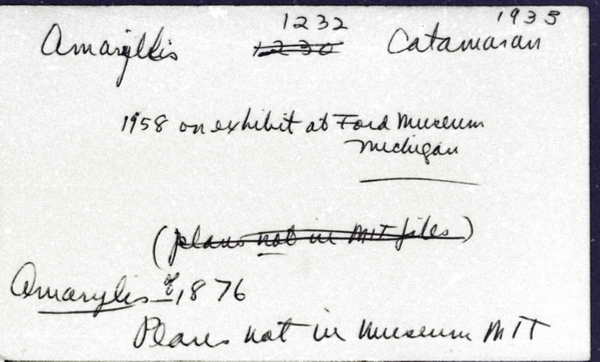 1232 1933
Amaryllis 1230 Catamaran
1958 on exhibit at Ford Museum
Michigan
(plans not in MIT files)
Amarylis of 1876
Plans not in Museum MIT